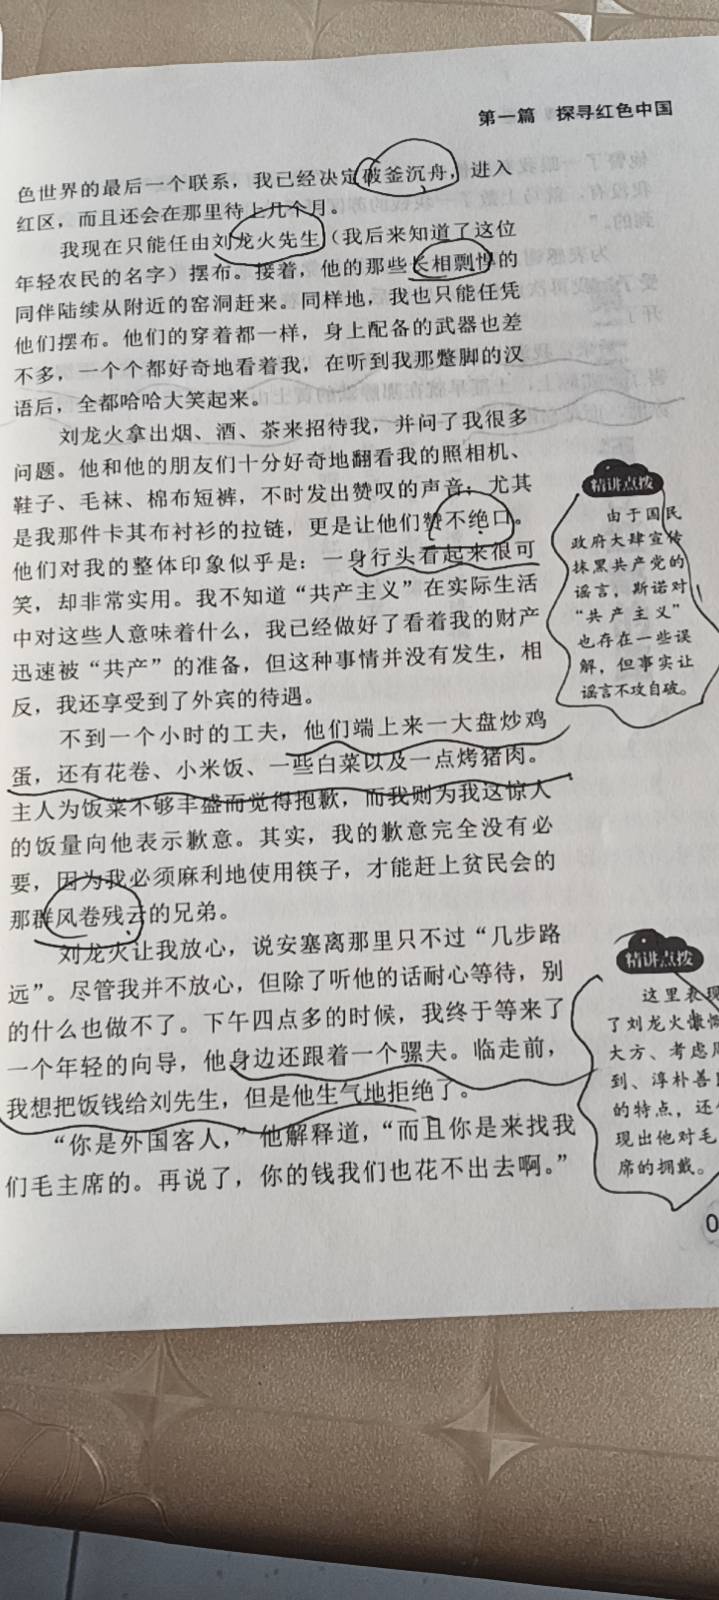 第一篇 探寻红色中国
色世界的最后一个联系，我已经决定破釜沉舟，进入
红区，而且还会在那里待上几个月。
我现在只能任由刘龙火先生（我后来知道了这位
年轻农民的名字）摆布。接着，他的那些长相剽悍的
同伴陆续从附近的窑洞赶来。同样地，我也只能任凭
他们摆布。他们的穿着都一样，身上配备的武器也差
不多，一个个都好奇地看着我，在听到我那蹩脚的汉
语后，全都哈哈大笑起来。
刘龙火拿出烟、酒、茶来招待我，并问了我很多
问题。他和他的朋友们十分好奇地翻看我的照相机、
鞋子、毛袜、棉布短裤，不时发出赞叹的声音；尤其
是我那件卡其布衬衫的拉链，更是让他们赞不绝口。
他们对我的整体印象似乎是：一身行头看起来很可
笑，却非常实用。我不知道“共产主义”在实际生活
中对这些人意味着什么，我已经做好了看着我的财产
迅速被“共产”的准备，但这种事情并没有发生，相
反，我还享受到了外宾的待遇。
不到一个小时的工夫，他们端上来一大盘炒鸡
蛋，还有花卷、小米饭、一些白菜以及一点烤猪肉。
主人为饭菜不够丰盛而觉得抱歉，而我则为我这惊人
的饭量向他表示歉意。其实，我的歉意完全没有必
要，因为我必须麻利地使用筷子，才能赶上贫民会的
那群风卷残云的兄弟。
刘龙火让我放心，说安塞离那里只不过“几步路
远”。尽管我并不放心，但除了听他的话耐心等待，别
的什么也做不了。下午四点多的时候，我终于等来了
一个年轻的向导，他身边还跟着一个骡夫。临走前，
我想把饭钱给刘先生，但是他生气地拒绝了。
“你是外国客人，”他解释道，“而且你是来找我
们毛主席的。再说了，你的钱我们也花不出去啊。”
精讲点拨
由于国民
政府大肆宣传
抹黑共产党的
谣言，斯诺对
“共产主义”
也存在一些误
解，但事实让
谣言不攻自破。
精讲点拨
这里表现
了刘龙火慷
大方、考虑
到、淳朴善
的特点，还
现出他对毛
席的拥戴。
0